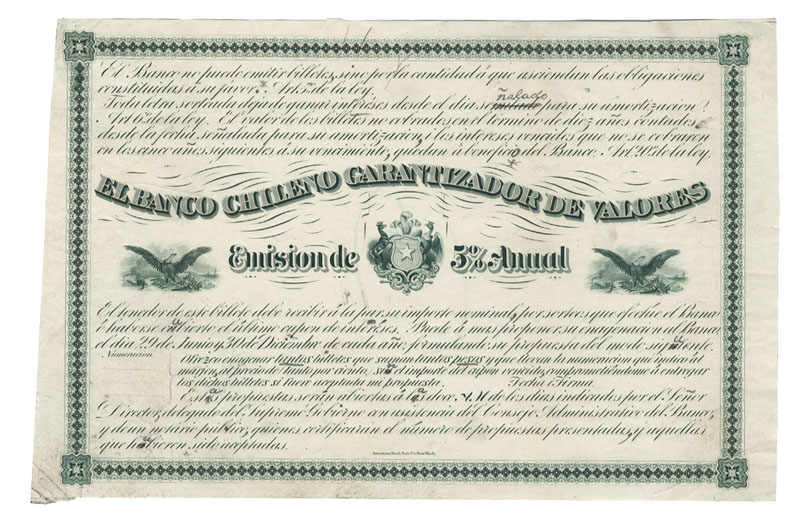 El Banco no puede emitir billetes, sino por la cantidad á que asciendan las obligaciones
constituidas á su favor. Art. 5º de la ley.
Toda letra sorteada deja de ganar intéreses desde el dia señalado para su amortizacion.
Art. 6º de la ley. El valor de los billetes no cobrados en el término de diez años contados
desde la fecha señalada para su amortizacion, i los intereses vencidos que no se cobraren
en los cinco años siguientes á su vencimiento, quedan á beneficio del Banco. Art. 20º de la ley.
EL BANCO CHILENO GARANTIZADOR DE VALORES
Emision de 5% Anual
El tenedor de este billete debe recibir á la par su importe nominal, por sorteos que efectúe el Banco
ó haberse cubierto el último cupon de interes. Puede á mas proponer su enajenacion al Banco
el dia 29 de Junio y 30 de Diciembre de cada año, formulando su propuesta del modo siguiente.
Numeracion.
Ofrezco enajenar tantos billetes que suman tantos pesos y que llevan la numeracion que indico al
márjen, al precio de tanto por ciento, sin el importe del cupon vencido, comprometiéndome á entregar
los dichos billetes si fuere aceptada mi propuesta. Fecha i Firma.
Estas propuestas serán abiertas á las doce M. de los dias indicados por el Señor
Director, delegado del Supremo Gobierno con asistencia del Consejo Administrativo del Banco,
y de un notario público, quienes certificarán el número de propuestas presentadas, y aquellas
que hubieren sido aceptadas.
American Bank Note Co. New York.